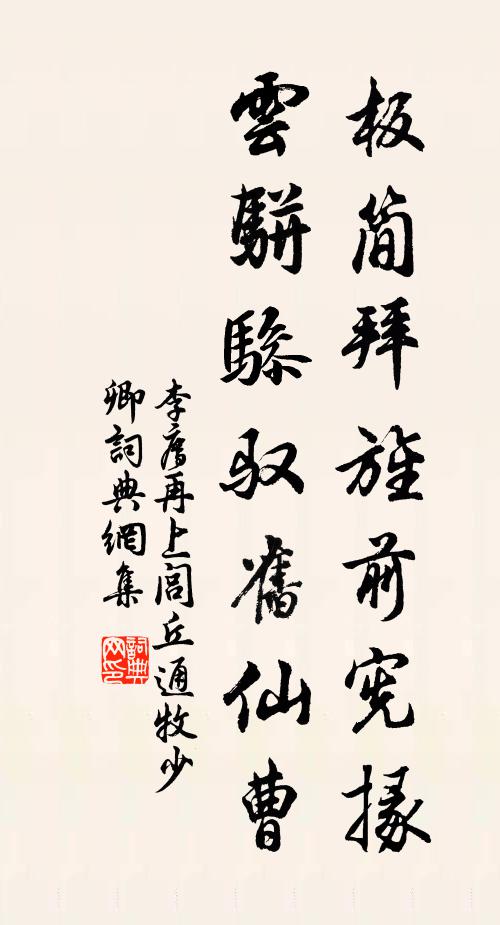 板簡拜旌前宪掾
雲駢驂驭舊仙曹
李廌再上閭丘通牧少
卿詞典網集
詞典
网印